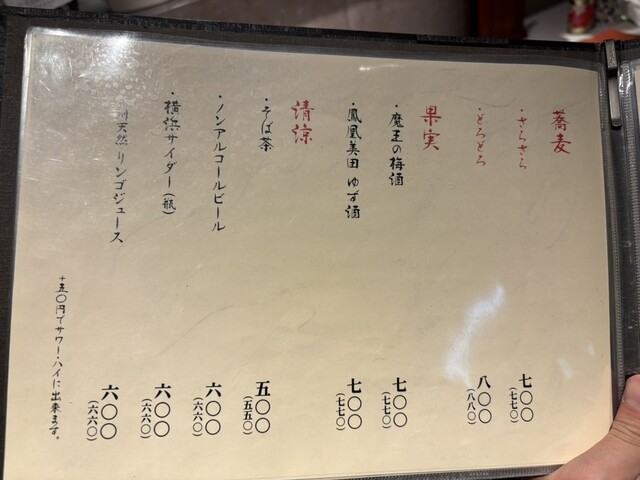 蕎麦
・さらさら 七〇〇(七七〇)
・とろとろ 八〇〇(八八〇)
果実
・魔王の梅酒 七〇〇(七七〇)
・鳳凰美田 ゆず酒 七〇〇(七七〇)
清涼
・そば茶 五〇〇(五五〇)
・ノンアルコールビール 六〇〇(六六〇)
・横浜サイダー(瓶) 六〇〇(六六〇)
天然 リンゴジュース 六〇〇(六六〇)
+五〇円でサワー・ハイに出来ます。